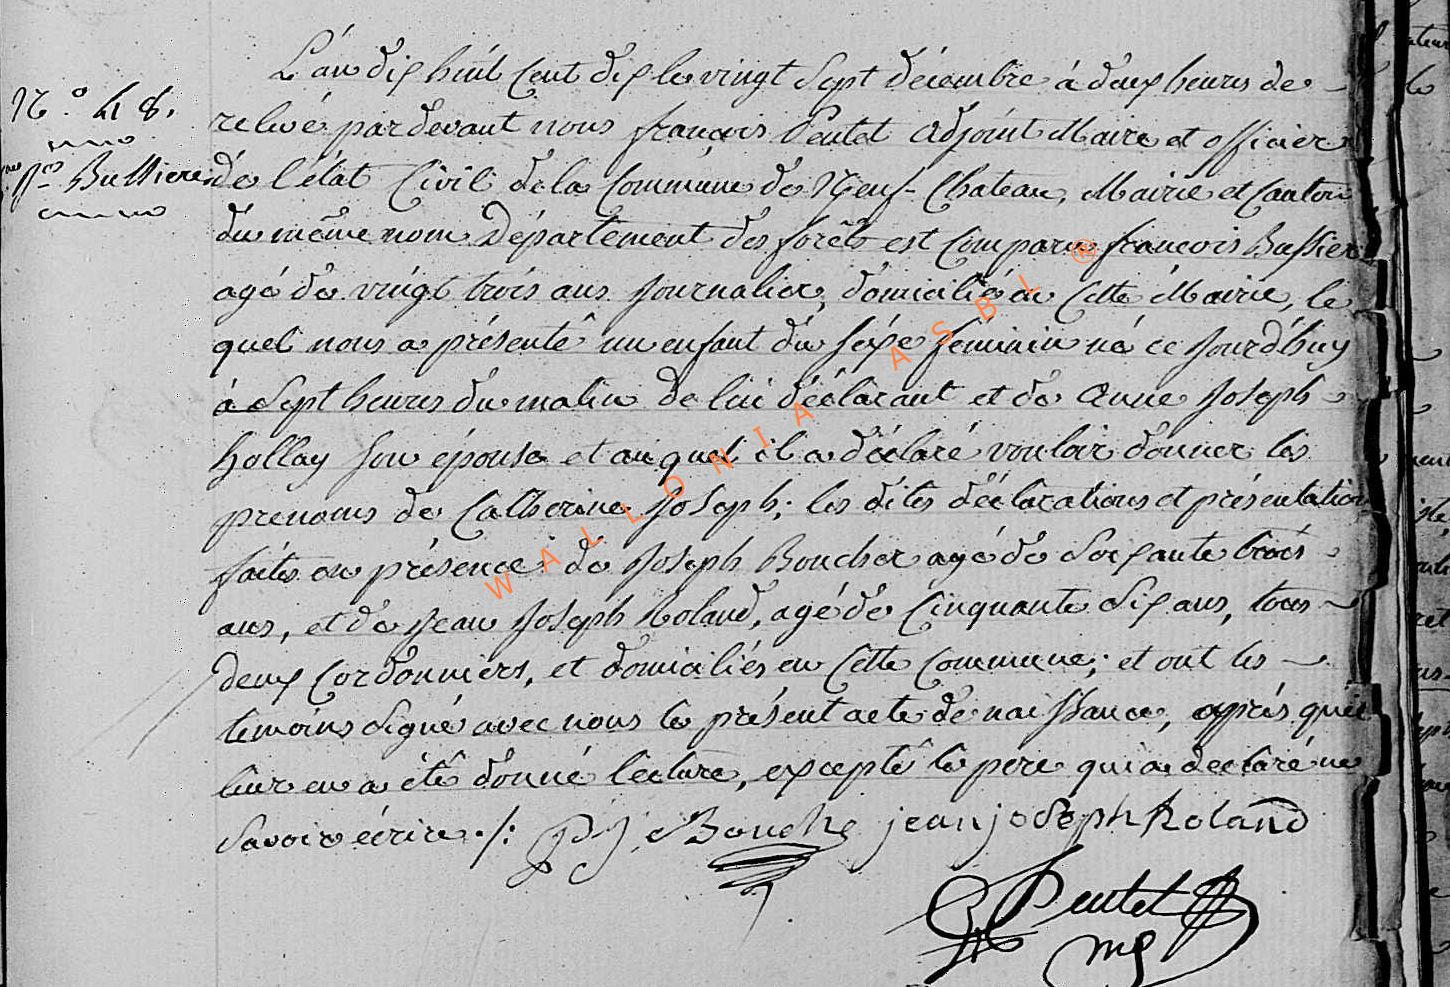 L'an dix huit Cent dix le vingt Sept décembre à deux heures de
N.° 48.
relevé pardevant nous françois Pentet adjoint Maire et officier
Bussiere
de l'état Civil de la Commune de Neuf-Chateau, Mairie et Canton
du même nom Département des forêts est Comparu françois Bussiere
agé de vingt trois ans Journalier, domicilié en Cette Mairie, le
quel nous a présenté un enfant du sexe féminin né ce Jourd'huy
à Sept heures du matin de lui déclarant et de Anne Joseph
hollay son épouse et auquel il a déclaré vouloir donner les
prenoms de Catherine Joseph; les dites déclarations et présentation
faites en présence de Joseph Boucher agé de Soixante trois
ans, et de Jean Joseph Roland, agé de Cinquante Six ans, tous
deux Cordonniers, et domiciliés en Cette Commune; et ont les
temoins signé avec nous le présent acte de naissance, après qu'il
leur en a été donné lecture, excepté le pere qui a declaré ne
Savoir écrire ./:
P J Bouche jean joseph Roland
Pentet
WALLONIA ASBL ®